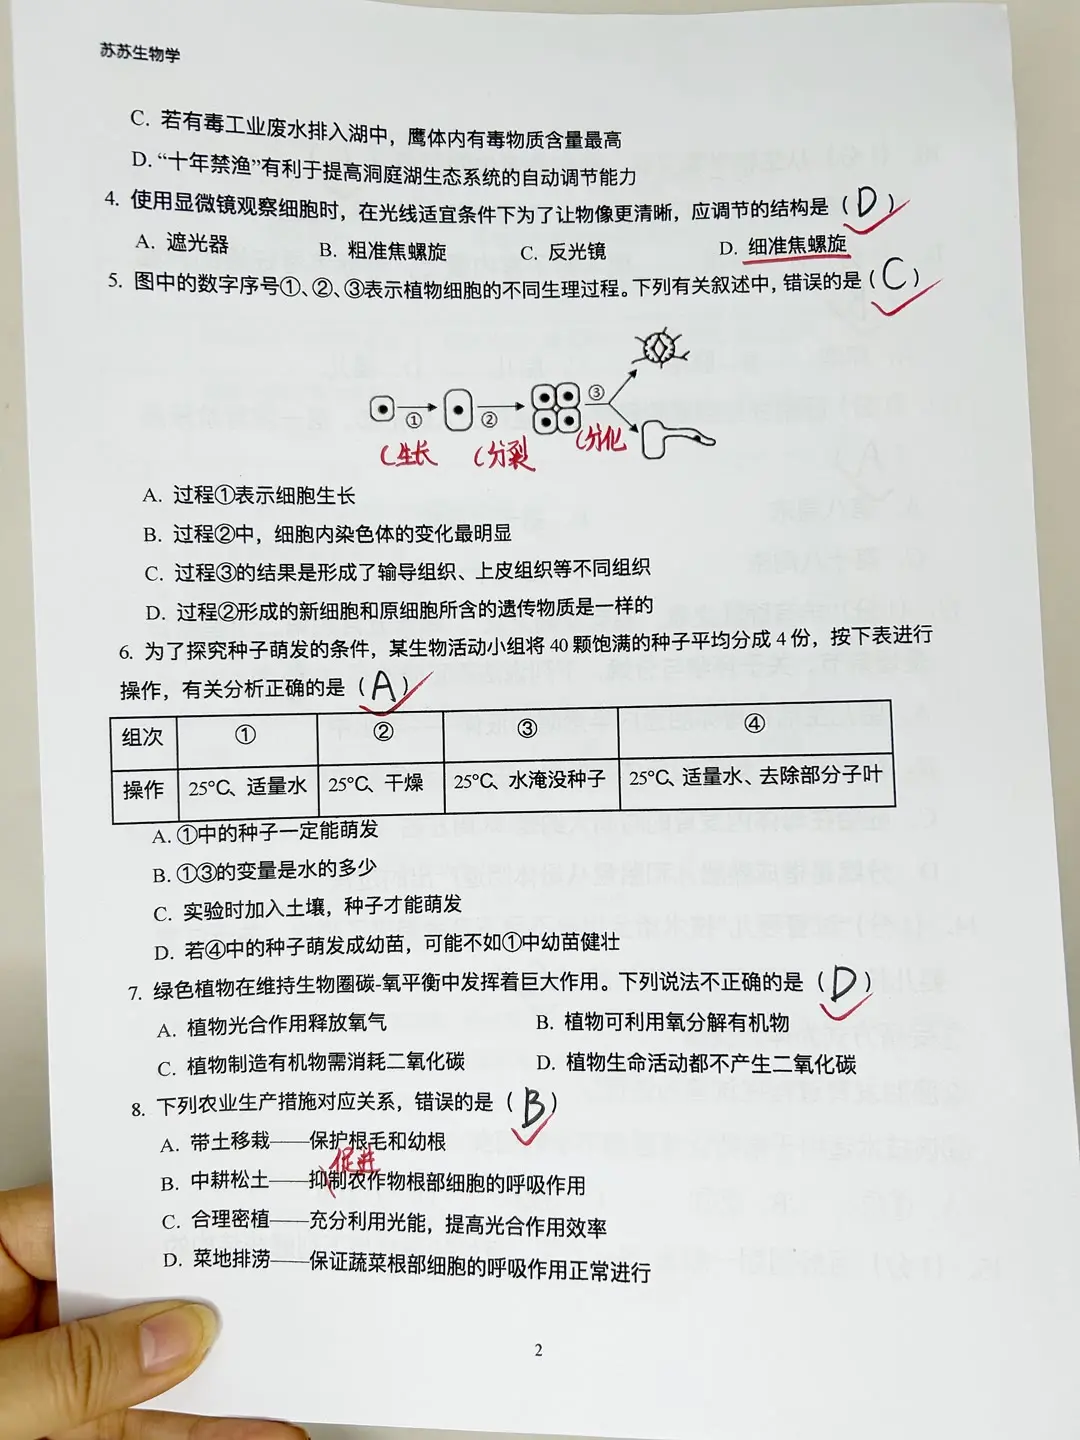 苏苏生物学
C. 若有毒工业废水排入湖中，鹰体内有毒物质含量最高
D. “十年禁渔”有利于提高洞庭湖生态系统的自动调节能力
4. 使用显微镜观察细胞时，在光线适宜条件下为了让物像更清晰，应调节的结构是（D）
A. 遮光器 B. 粗准焦螺旋 C. 反光镜 D. 细准焦螺旋
5. 图中的数字序号①、②、③表示植物细胞的不同生理过程。下列有关叙述中，错误的是（C）
① ② ③
生长 分裂 分化
A. 过程①表示细胞生长
B. 过程②中，细胞内染色体的变化最明显
C. 过程③的结果是形成了输导组织、上皮组织等不同组织
D. 过程②形成的新细胞和原细胞所含的遗传物质是一样的
6. 为了探究种子萌发的条件，某生物活动小组将 40 颗饱满的种子平均分成 4 份，按下表进行
操作，有关分析正确的是（A）
组次 ① ② ③ ④
操作 25℃、适量水 25℃、干燥 25℃、水淹没种子 25℃、适量水、去除部分子叶
A. ①中的种子一定能萌发
B. ①③的变量是水的多少
C. 实验时加入土壤，种子才能萌发
D. 若④中的种子萌发成幼苗，可能不如①中幼苗健壮
7. 绿色植物在维持生物圈碳-氧平衡中发挥着巨大作用。下列说法不正确的是（D）
A. 植物光合作用释放氧气 B. 植物可利用氧分解有机物
C. 植物制造有机物需消耗二氧化碳 D. 植物生命活动都不产生二氧化碳
8. 下列农业生产措施对应关系，错误的是（B）
A. 带土移栽——保护根毛和幼根
促进
B. 中耕松土——抑制农作物根部细胞的呼吸作用
C. 合理密植——充分利用光能，提高光合作用效率
D. 菜地排涝——保证蔬菜根部细胞的呼吸作用正常进行
2